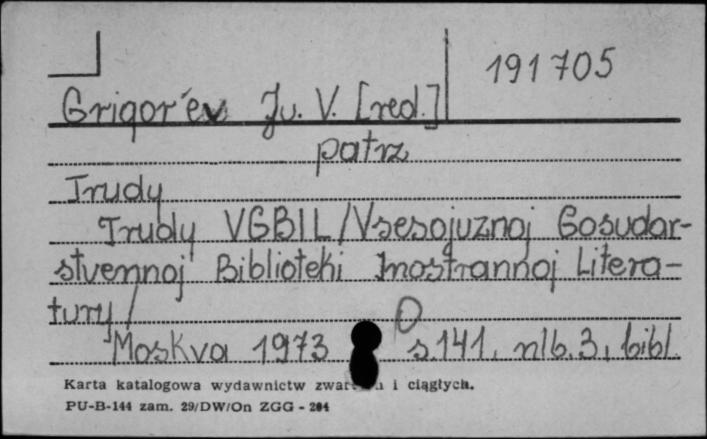 191705
Grigor'ev Ju. V. [red.]
patrz
Trudy
Trudy VGBIL /Vsesojuznoj Gosudar-
stvennoj Biblioteki Inostrannoj Litera-
tury/
Moskva 1973 s. 141, nlb. 3, bibl.
Karta katalogowa wydawnictw i ciągłych.
PU-B-144 zam. 29/DW/On ZGG - 204